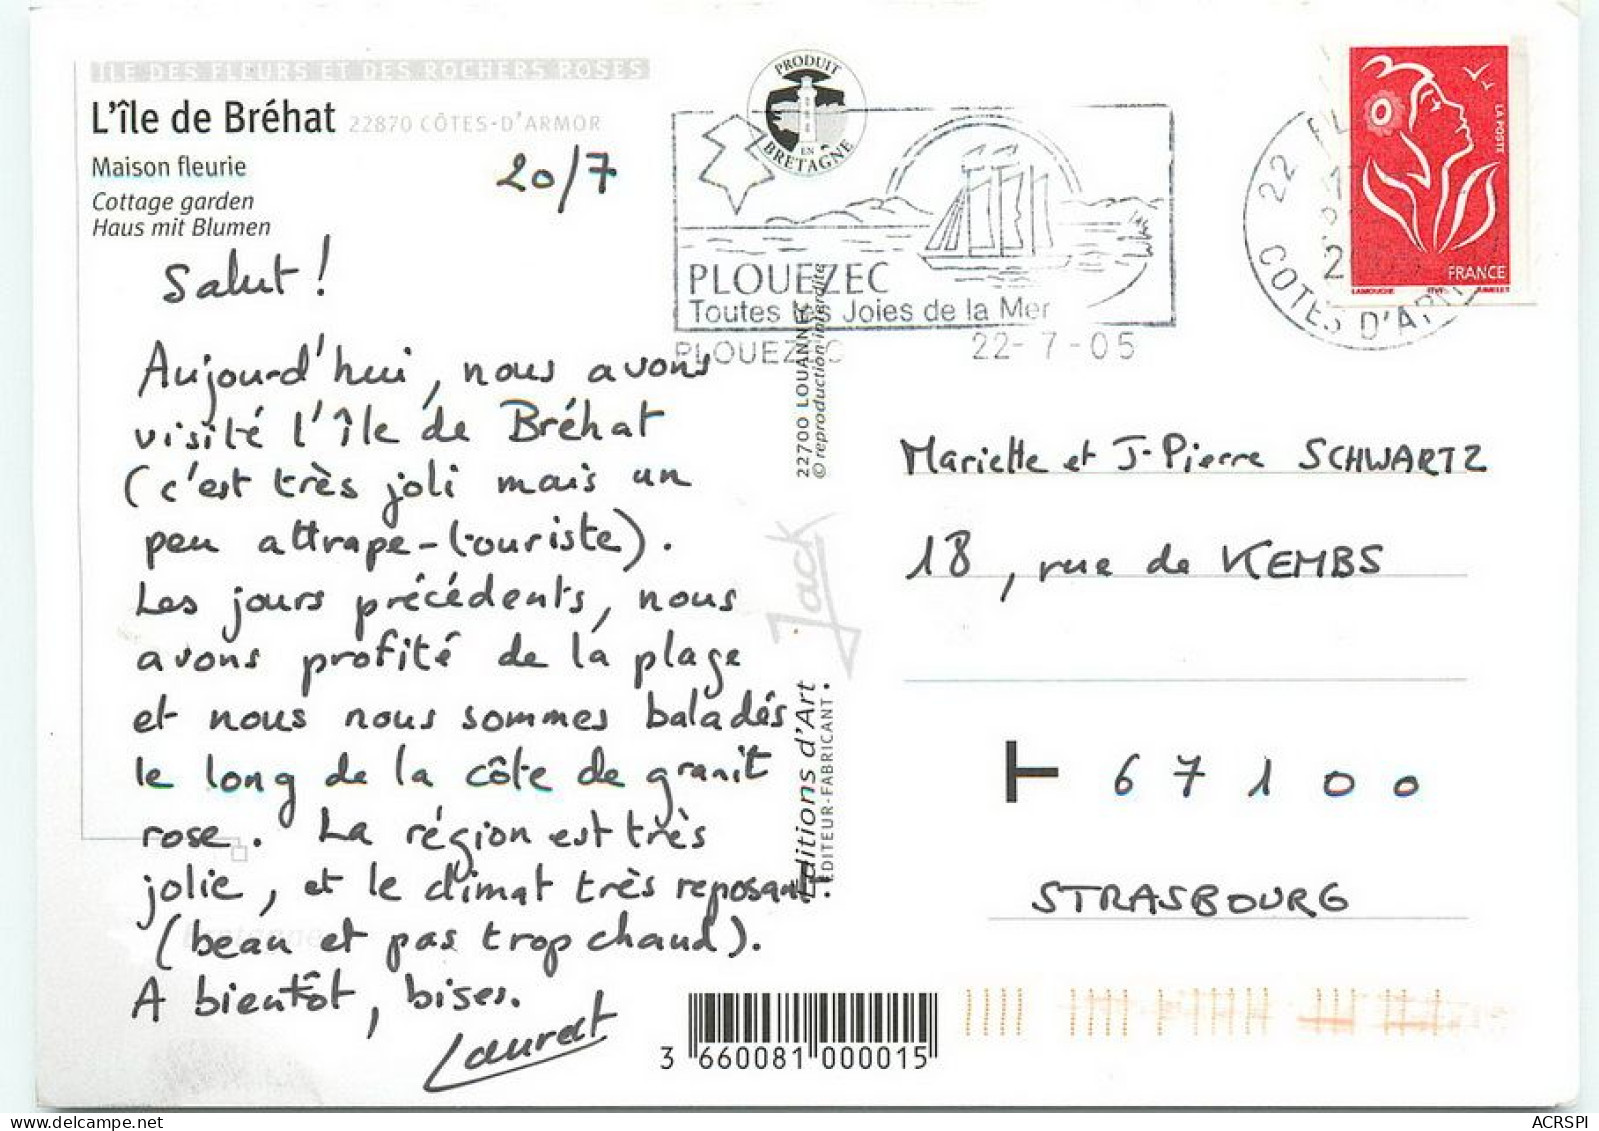 ÎLE DES FLEURS ET DES ROCHERS ROSES
L'île de Bréhat 22870 CÔTES-D'ARMOR
Maison fleurie
Cottage garden
Haus mit Blumen
20/7
Salut !
Aujourd'hui, nous avons
visité l'île de Bréhat
(c'est très joli mais un
peu attrape-touriste).
Les jours précédents, nous
avons profité de la plage
et nous nous sommes baladés
le long de la côte de granit
rose. La région est très
jolie, et le climat très reposant
(beau et pas trop chaud).
A bientôt, bises.
Laurent
Bretagne
PRODUIT
EN
BRETAGNE
PLOUEZEC
Toutes les Joies de la Mer
PLOUEZEC 22-7-05
22700 LOUANNEC
© reproduction interdite
Jack
Editions d'Art
EDITEUR-FABRICANT
22
COTES D'ARM
LA POSTE
FRANCE
LAMOUCHE ITVF JUMELET
Mariette et J-Pierre SCHWARTZ
18, rue de KEMBS
T 67100
STRASBOURG
3 660081 000015
ACRSPI